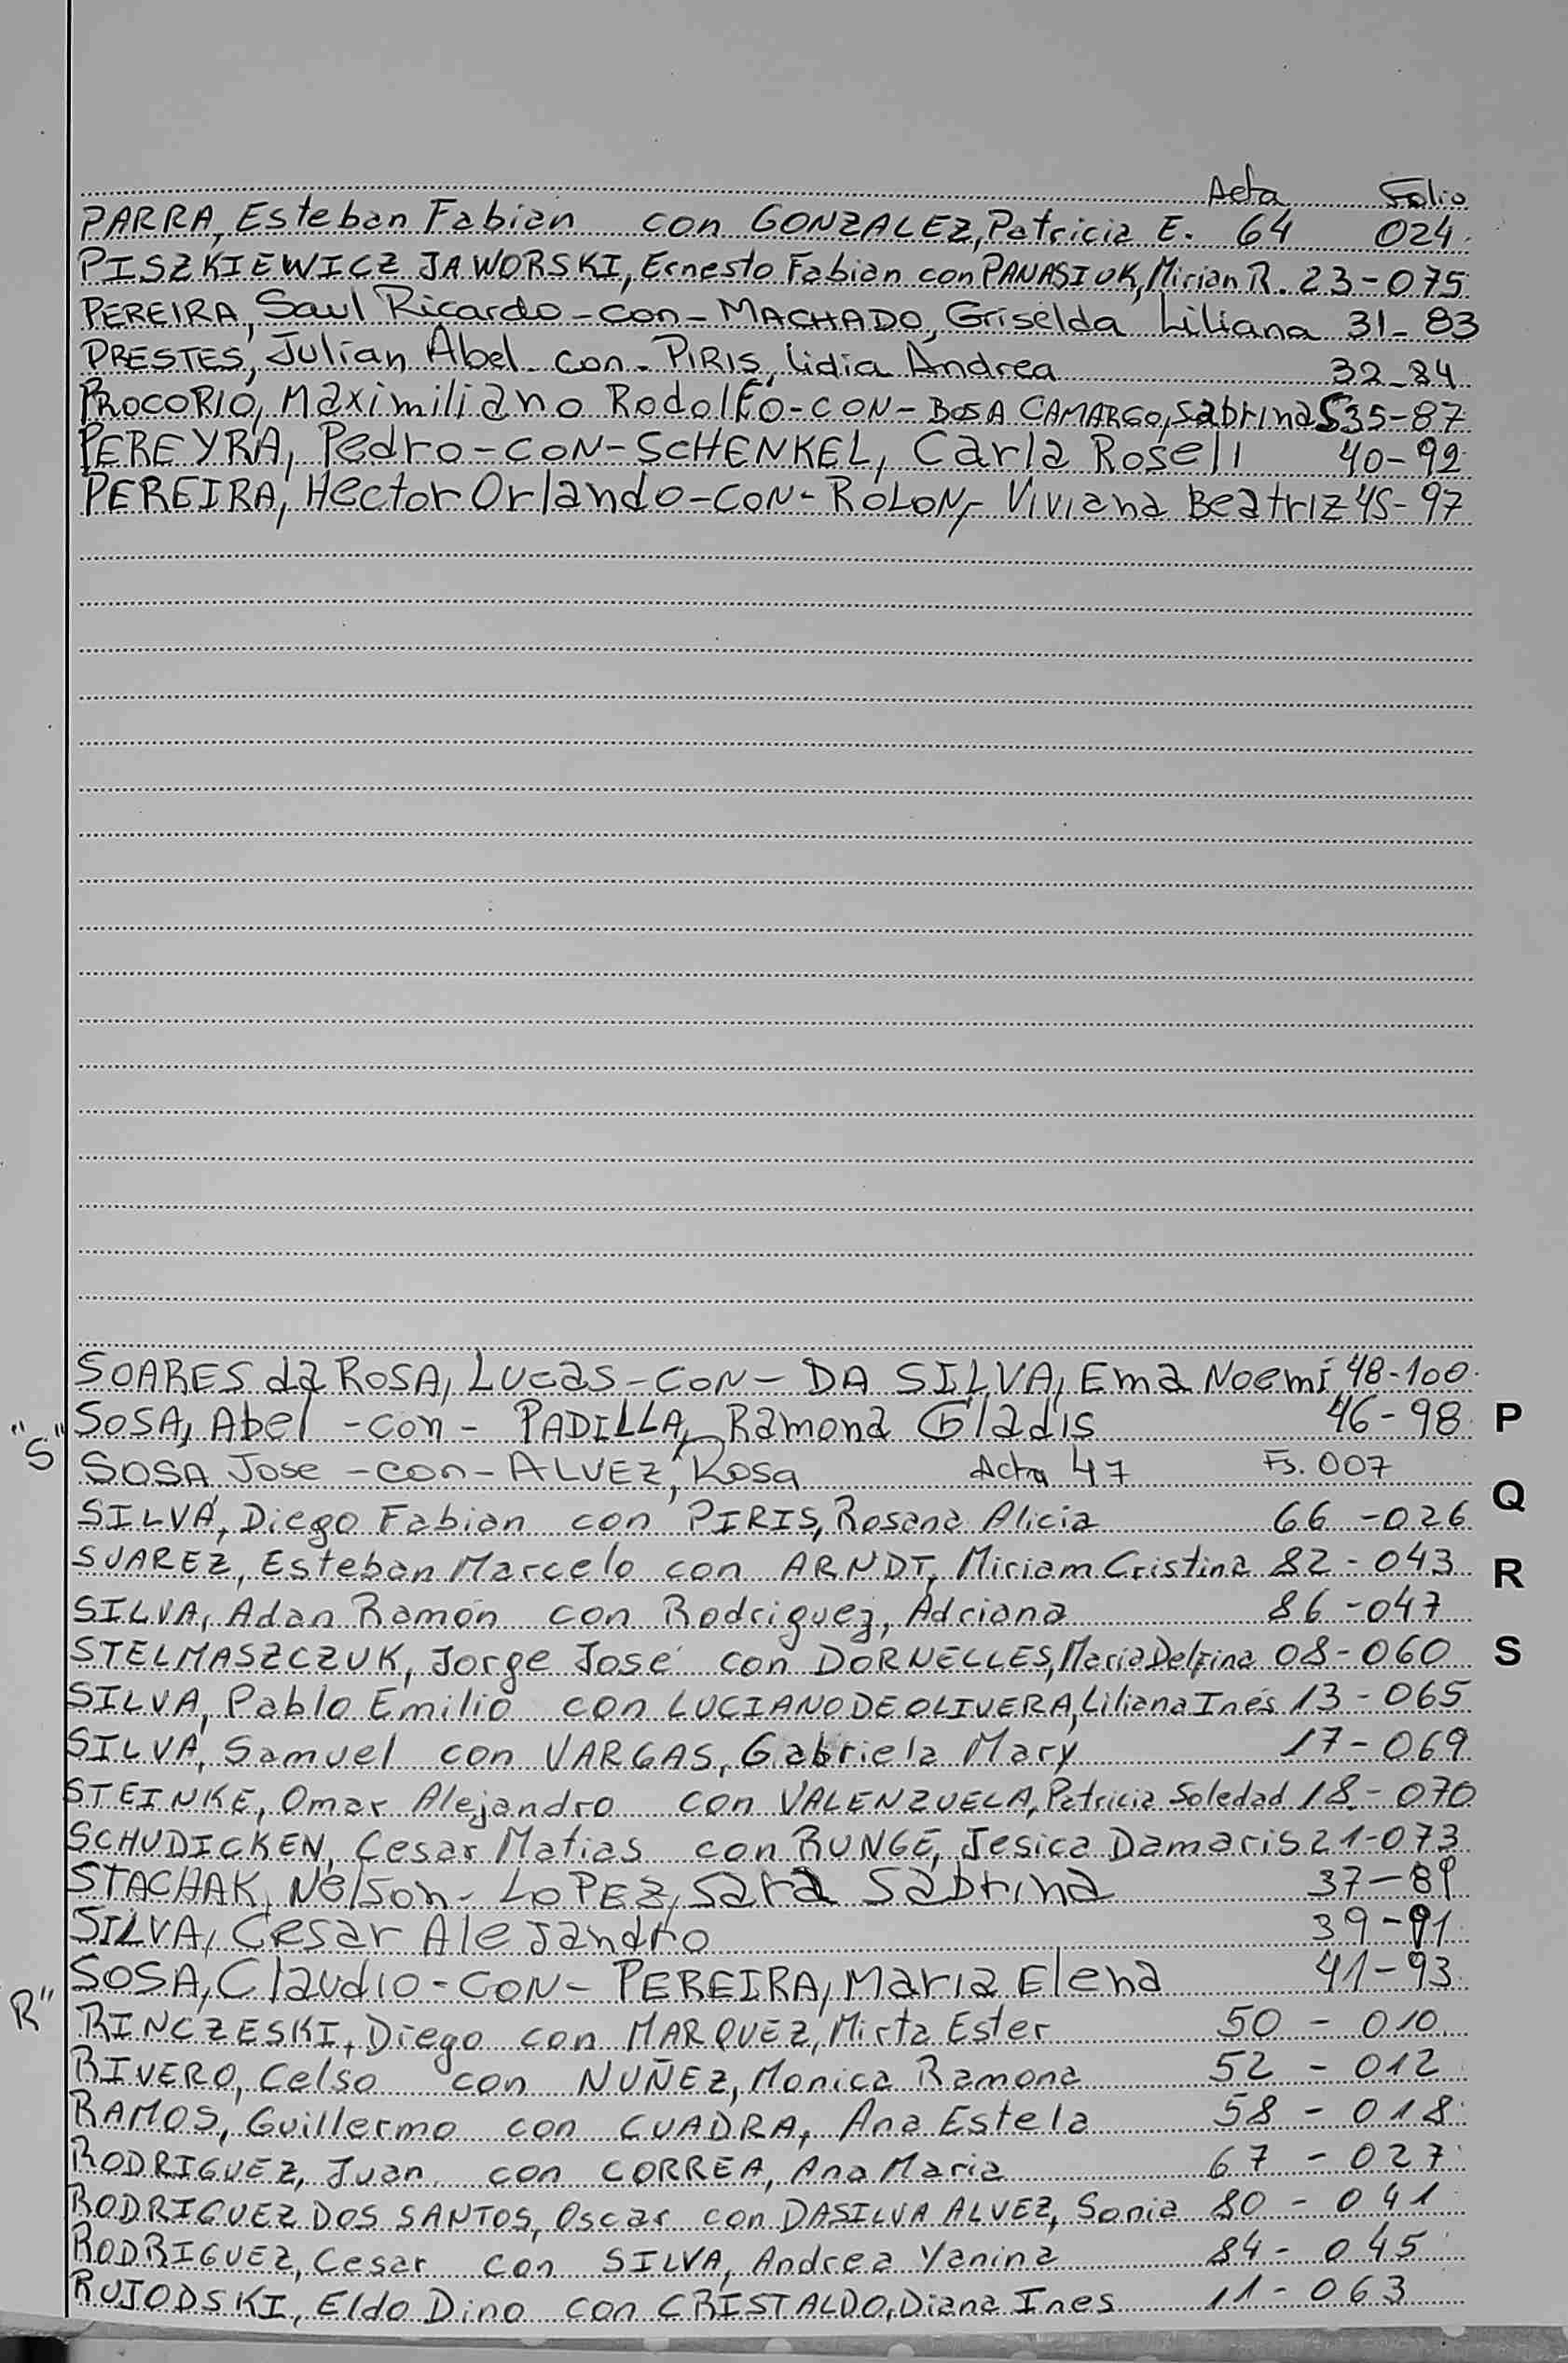 Acta Folio
PARRA, Esteban Fabian con GONZALEZ, Patricia E. 64 024.
PISZKIEWICZ JAWORSKI, Ernesto Fabian con PANASIUK, Mirian R. 23-075
PEREIRA, Saul Ricardo-con-MACHADO, Griselda Liliana 31-83
PRESTES, Julian Abel-con-PIRIS, Lidia Andrea 32-84
PROCORIO, Maximiliano Rodolfo-CON-BOSA CAMARGO, Sabrina S 35-87
PEREYRA, Pedro-CON-SCHENKEL, Carla Roseli 40-92
PEREIRA, Hector Orlando-CON-ROLON, Viviana Beatriz 45-97
SOARES da ROSA, Lucas-CON-DA SILVA, Ema Noemí 48-100
SOSA, Abel -con- PADILLA, Ramona Gladis 46-98 P
"S" SOSA Jose -con- ALVEZ, Rosa Acta 47 Fs. 007
SILVA, Diego Fabian con PIRIS, Rosana Alicia 66-026 Q
SUAREZ, Esteban Marcelo con ARNDT, Miriam Cristina 82-043 R
SILVA, Adan Ramón con Rodriguez, Adriana 86-047
STELMASZCZUK, Jorge José con DORNELLES, Maria Delfina 08-060 S
SILVA, Pablo Emilio con LUCIANO DE OLIVERA, Liliana Inés 13-065
SILVA, Samuel con VARGAS, Gabriela Mary 17-069
STEINKE, Omar Alejandro con VALENZUELA, Patricia Soledad 18-070
SCHUDICKEN, Cesar Matias con RUNGE, Jesica Damaris 21-073
STACHAK, Nelson- LOPEZ, Sara Sabrina 37-89
SILVA, Cesar Alejandro 39-91
SOSA, Claudio-CON-PEREIRA, Maria Elena 41-93
R" RINCZESKI, Diego con MARQUEZ, Mirta Ester 50-010
RIVERO, Celso con NUÑEZ, Monica Ramona 52-012
RAMOS, Guillermo con CUADRA, Ana Estela 58-018
RODRIGUEZ, Juan con CORREA, Ana Maria 67-027
RODRIGUEZ DOS SANTOS, Oscar con DASILVA ALVEZ, Sonia 80-041
RODRIGUEZ, Cesar con SILVA, Andrea Yanina 84-045
RUJODSKI, Eldo Dino con CRISTALDO, Diana Ines 11-063